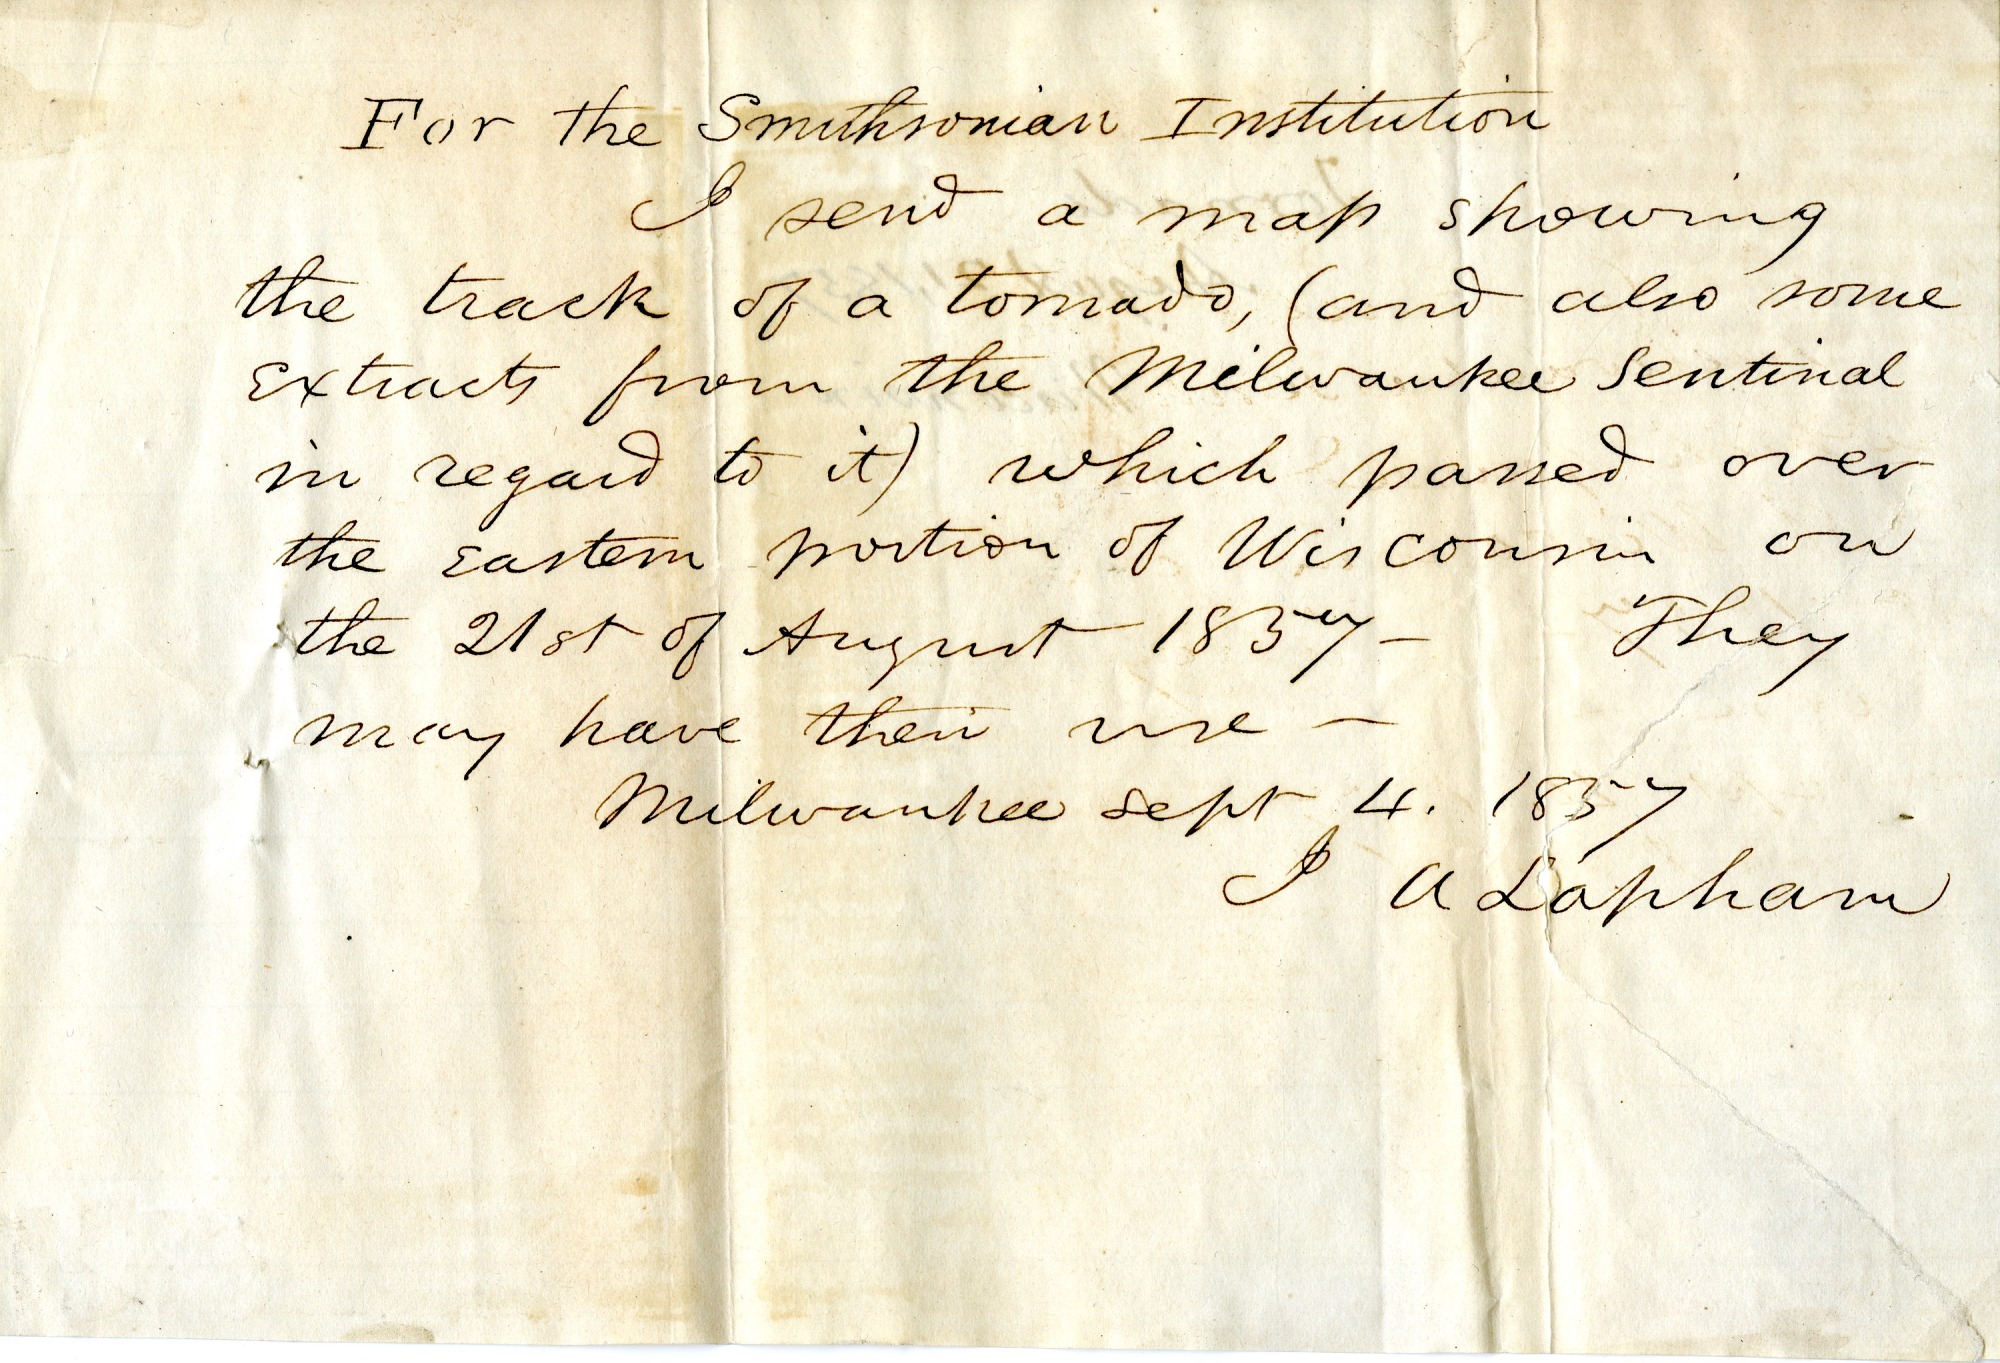 For the Smithsonian Institution
I send a map showing
the track of a tornado, (and also some
extracts from the Milwaukee Sentinal
in regard to it) which passed over
the eastern portion of Wisconsin on
the 21st of August 1857 – They
may have their use –
Milwaukee Sept 4. 1857
I A Lapham